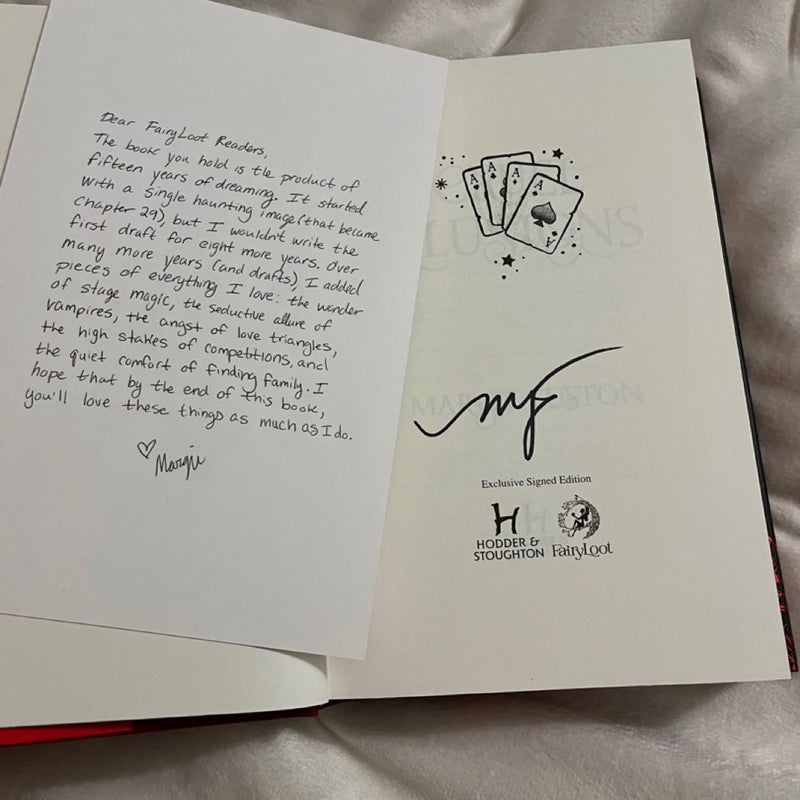 Dear FairyLoot Readers,
The book you hold is the product of
fifteen years of dreaming. It started
with a single haunting image (that became
Chapter 29), but I wouldn't write the
first draft for eight more years. Over
many more years (and drafts), I added
pieces of everything I love: the wonder
of stage magic, the seductive allure of
vampires, the angst of love triangles,
the high stakes of competitions, and
the quiet comfort of finding family. I
hope that by the end of this book,
you'll love these things as much as I do.
♡ Margie
A
A
A
A
A
mf
Exclusive Signed Edition
H
HODDER &
STOUGHTON
FairyLoot